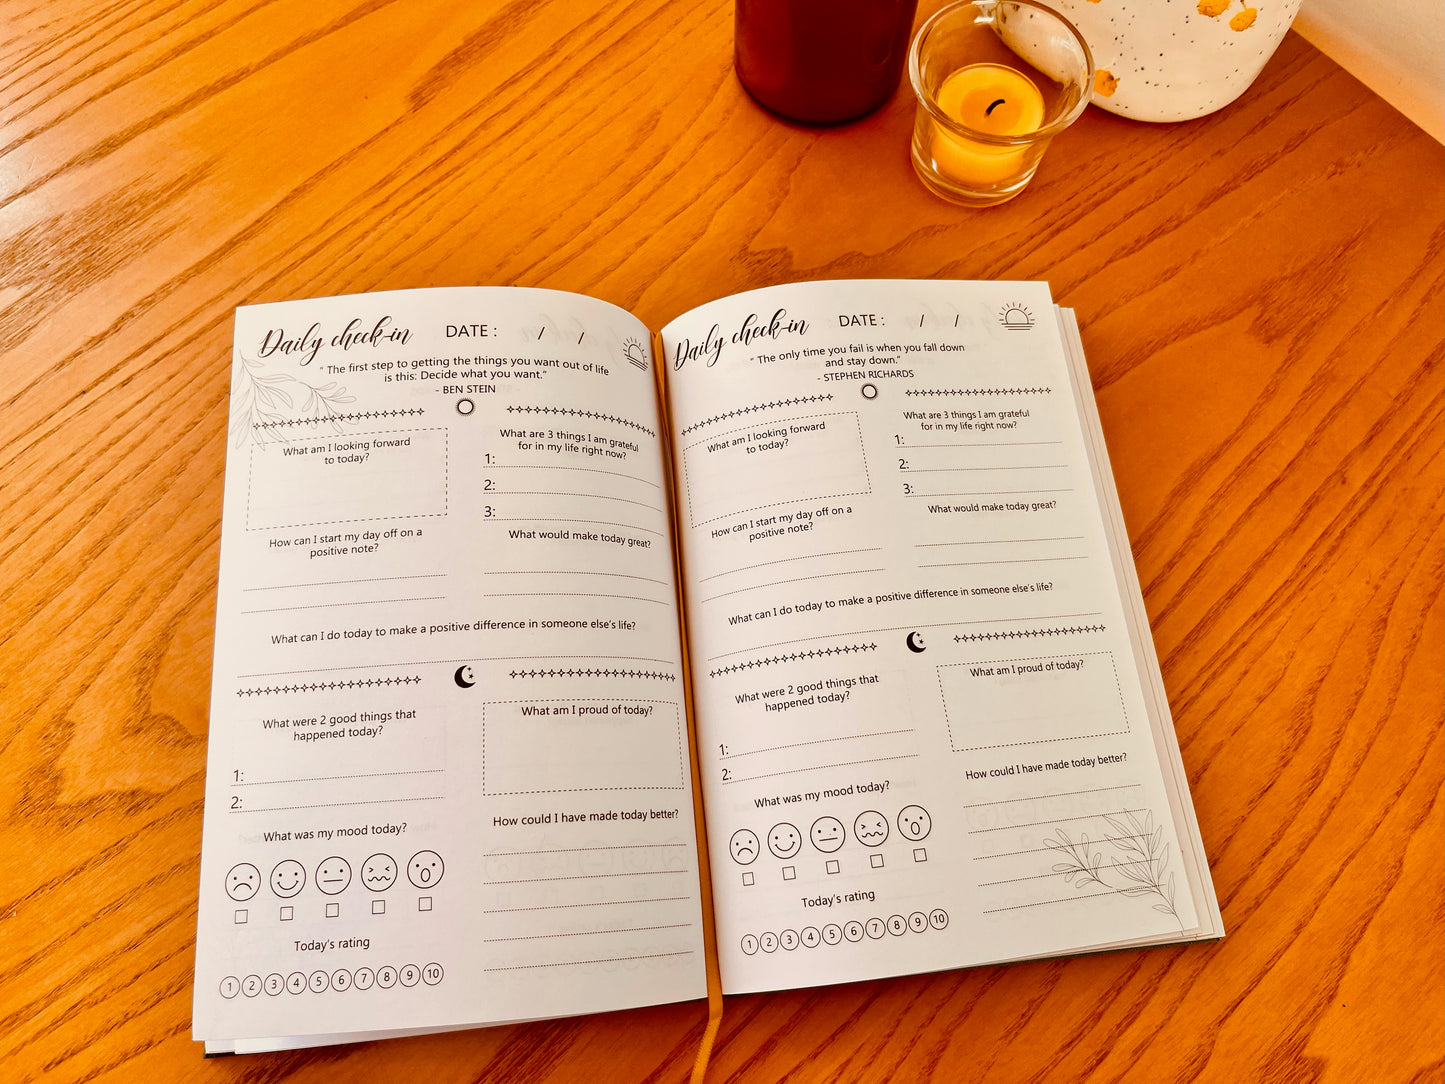 Daily check-in DATE : / /
“ The first step to getting the things you want out of life
is this: Decide what you want.”
- BEN STEIN
What am I looking forward
to today?
What are 3 things I am grateful
for in my life right now?
1:
2:
3:
How can I start my day off on a
positive note?
What would make today great?
What can I do today to make a positive difference in someone else's life?
What were 2 good things that
happened today?
1:
2:
What am I proud of today?
What was my mood today?
How could I have made today better?
Today's rating
1 2 3 4 5 6 7 8 9 10
Daily check-in DATE : / /
“ The only time you fail is when you fall down
and stay down.”
- STEPHEN RICHARDS
What am I looking forward
to today?
What are 3 things I am grateful
for in my life right now?
1:
2:
3:
How can I start my day off on a
positive note?
What would make today great?
What can I do today to make a positive difference in someone else's life?
What were 2 good things that
happened today?
1:
2:
What am I proud of today?
What was my mood today?
How could I have made today better?
Today's rating
1 2 3 4 5 6 7 8 9 10